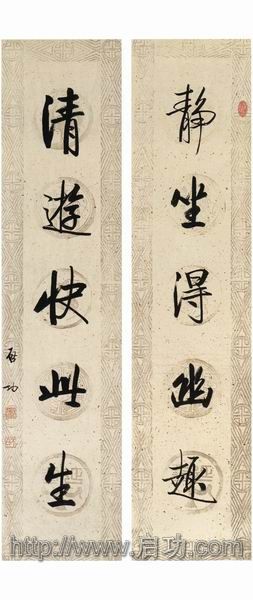 静坐得幽趣
清遊快此生
启功
http://www.启功.com